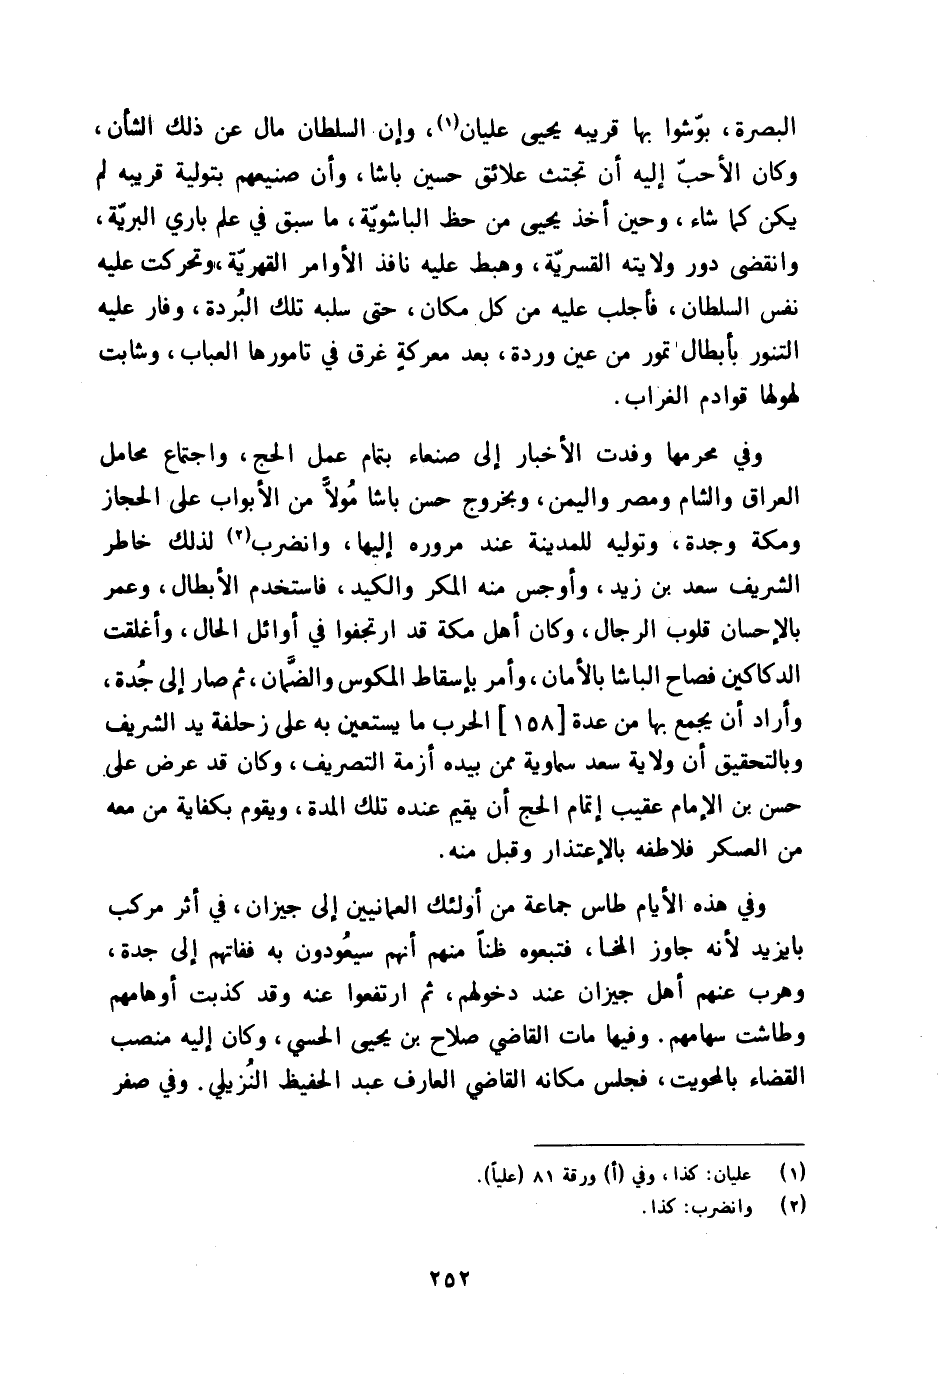 البصرة، بوّشوا بها قريبه يحيى عليان(١)، وإن السلطان مال عن ذلك الشأن،
وكان الأحبّ إليه أن تجتث علائق حسين باشا، وأن صنيعهم بتولية قريبه لم
يكن كما شاء، وحين أخذ يحيى من حظ الباشويّة، ما سبق في علم باري البريّة،
وانقضى دور ولايته القسريّة، وهبط عليه نافذ الأوامر القهريّة، وتحركت عليه
نفس السلطان، فأجلب عليه من كل مكان، حتى سلبه تلك البُردة، وفار عليه
التنور بأبطال تمور من عين وردة، بعد معركةٍ غرق في تامورها العباب، وشابت
لهولها قوادم الغراب.
وفي محرمها وفدت الأخبار إلى صنعاء بتمام عمل الحج، واجتماع محامل
العراق والشام ومصر واليمن، وبخروج حسن باشا مُولاًّ من الأبواب على الحجاز
ومكة وجدة، وتوليه للمدينة عند مروره إليها، وانضرب(٢) لذلك خاطر
الشريف سعد بن زيد، وأوجس منه المكر والكيد، فاستخدم الأبطال، وعمر
بالإحسان قلوب الرجال، وكان أهل مكة قد ارتجفوا في أوائل الحال، وأغلقت
الدكاكين فصاح الباشا بالأمان، وأمر بإسقاط المكوس والضَّمان، ثم صار إلى جُدة،
وأراد أن يجمع بها من عدة [١٥٨] الحرب ما يستعين به على زحلفة يد الشريف
وبالتحقيق أن ولاية سعد سماوية ممن بيده أزمة التصريف، وكان قد عرض على
حسن بن الإمام عقيب إتمام الحج أن يقيم عنده تلك المدة، ويقوم بكفاية من معه
من العسكر فلاطفه بالإعتذار وقبل منه.
وفي هذه الأيام طاس جماعة من أولئك العمانيين إلى جيزان، في أثر مركب
بايزيد لأنه جاوز المخا، فتبعوه ظناً منهم أنهم سيعُودون به ففاتهم إلى جدة،
وهرب عنهم أهل جيزان عند دخولهم، ثم ارتفعوا عنه وقد كذبت أوهامهم
وطاشت سهامهم. وفيها مات القاضي صلاح بن يحيى الحسي، وكان إليه منصب
القضاء بالمحويت، فجلس مكانه القاضي العارف عبد الحفيظ النُزيلي. وفي صفر
(١) عليان: كذا، وفي (أ) ورقة ٨١ (علياً).
(٢) وانضرب: كذا.
٢٥٢